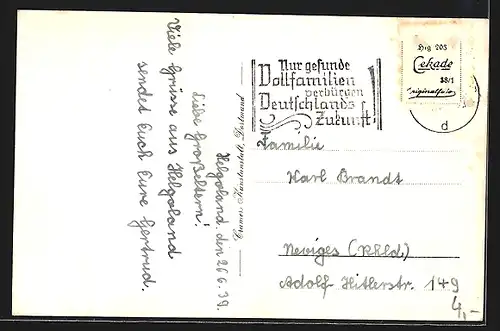 Helgoland, den 26.6.39.
Liebe Großeltern!
Viele Grüsse aus Helgoland
sendet Euch Eure Gertrud.
Cramers Kunstanstalt, Dortmund
Nur gesunde
Vollfamilien
verbürgen
Deutschlands
Zukunft!
Hlg 203
Cekade
38/1
Originalfoto
d
Familie
Karl Brandt
Neviges (Rhld.)
Adolf-Hitlerstr. 149
4,-